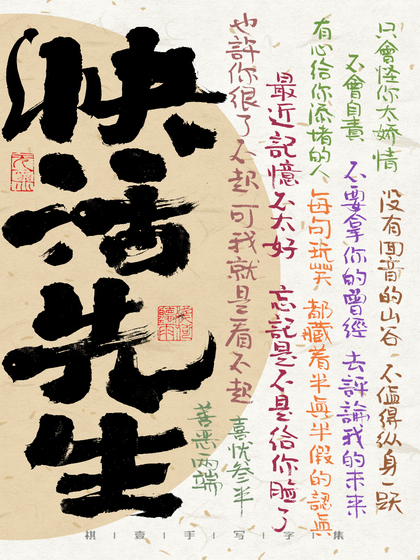 快活先生
沒有回音的山谷 不值得纵身一跃
不要拿你的曾經 去評論我的未来
有心給你添堵的人
不會自責
只會怪你太嬌情
每句玩笑 都藏着半真半假的認真
最近記憶不太好 忘記是不是給你臉了
也許你很了不起 可我就是看不起
喜忧叁半
善恶兩端
棋|壹|手|写|字|集